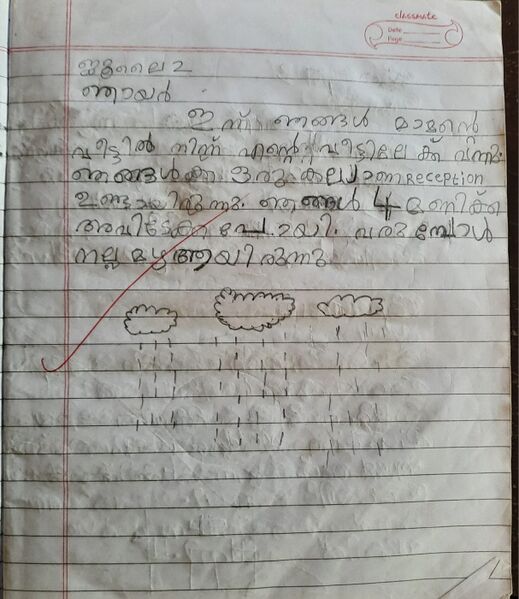 classmate
Date
Page
ജൂലൈ 2
ഞായർ
ഇന്ന് ഞങ്ങൾ മാമന്റെ
വീട്ടിൽ നിന്ന് എന്റെ വീട്ടിലേക്ക് വന്നു.
ഞങ്ങൾക്ക് ഒരു കല്യാണ Reception
ഉണ്ടായിരുന്നു. ഞങ്ങൾ 4 മണിക്ക്
അവിടേക്ക് പോയി. വരുമ്പോൾ
നല്ല മഴ ആയിരുന്നു